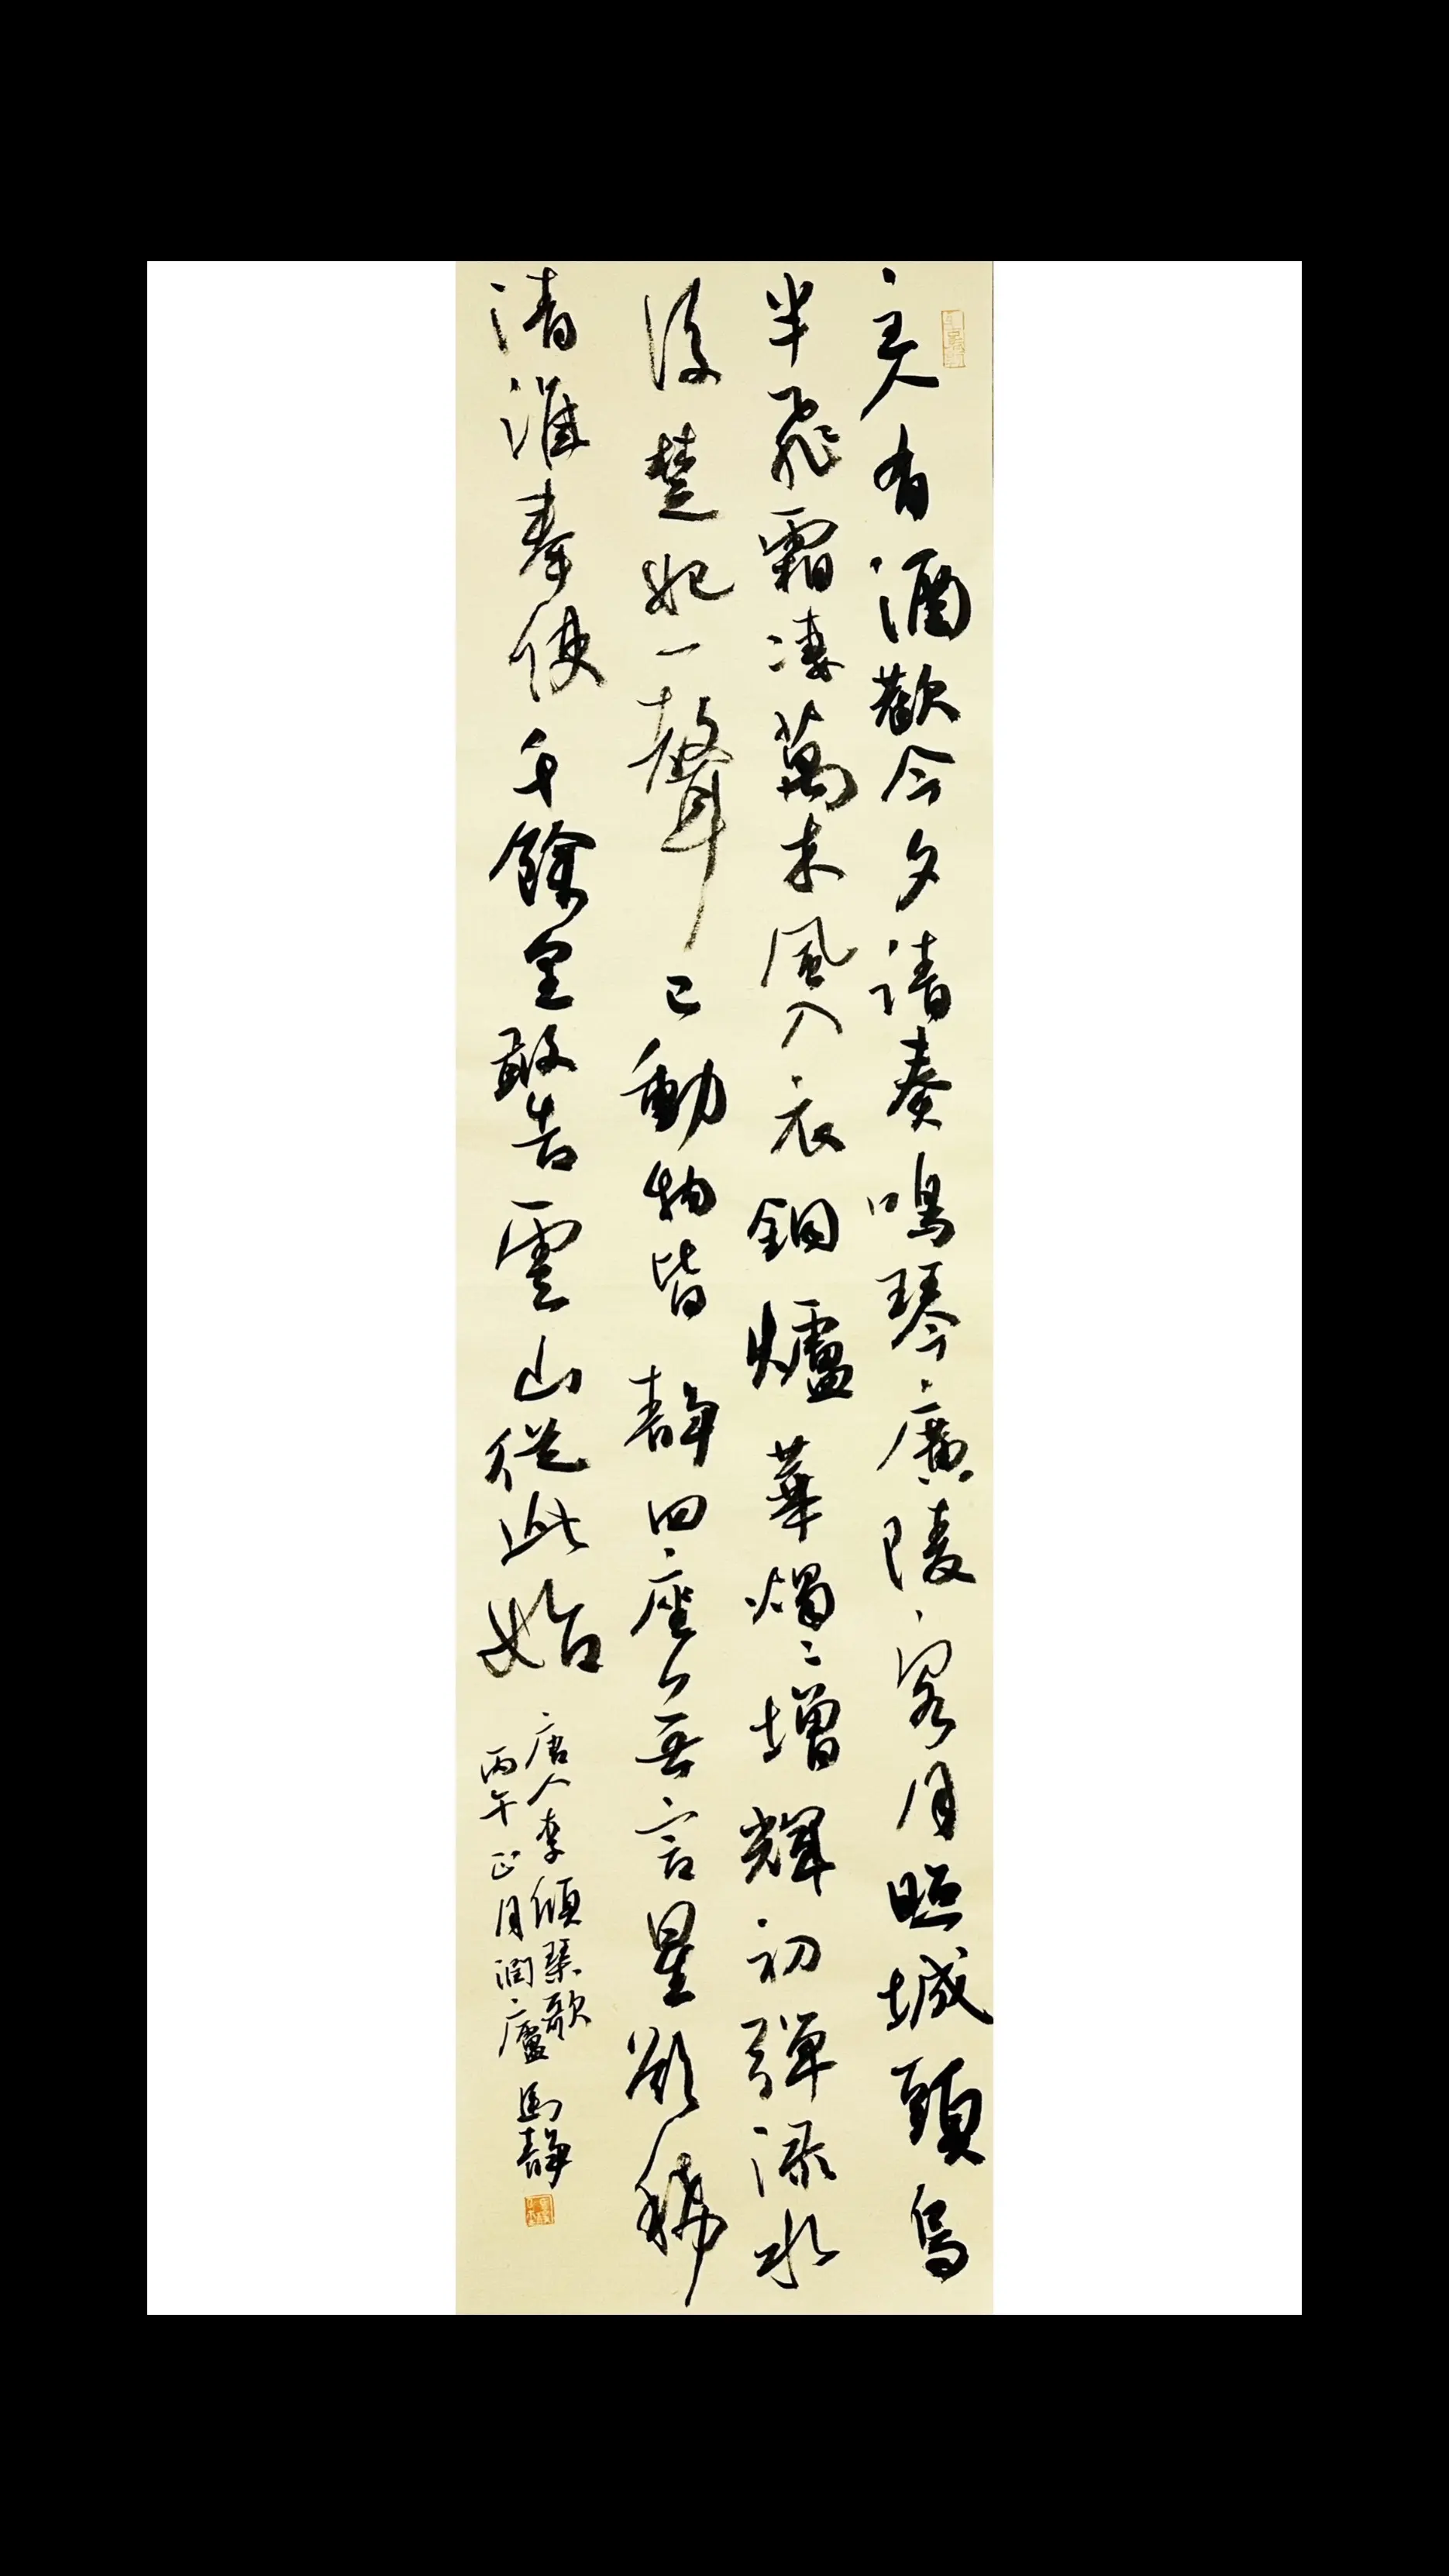 主人有酒歡今夕請奏鳴琴廣陵客月照城頭烏
半飛霜凄萬木風入衣銅爐華燭〻增輝初彈淥水
後楚妃一聲已動物皆靜四座無言星欲稀
清淮奉使千餘里敢告雲山從此始
唐人李頎琴歌
丙午正月潤廬馬靜